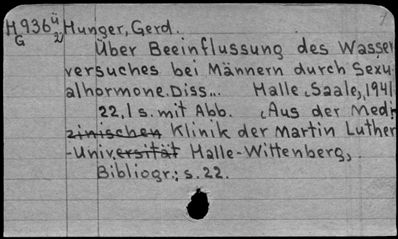 H936ü Hunger, Gerd.
G 2
Über Beeinflussung des Wasser
versuches bei Männern durch Sexu-
alhormone. Diss... Halle (Saale), 1941
22,1 s. mit Abb. (Aus der Medi-
zinischen Klinik der Martin Luther
-Universität Halle-Wittenberg).
Bibliogr.: s. 22.